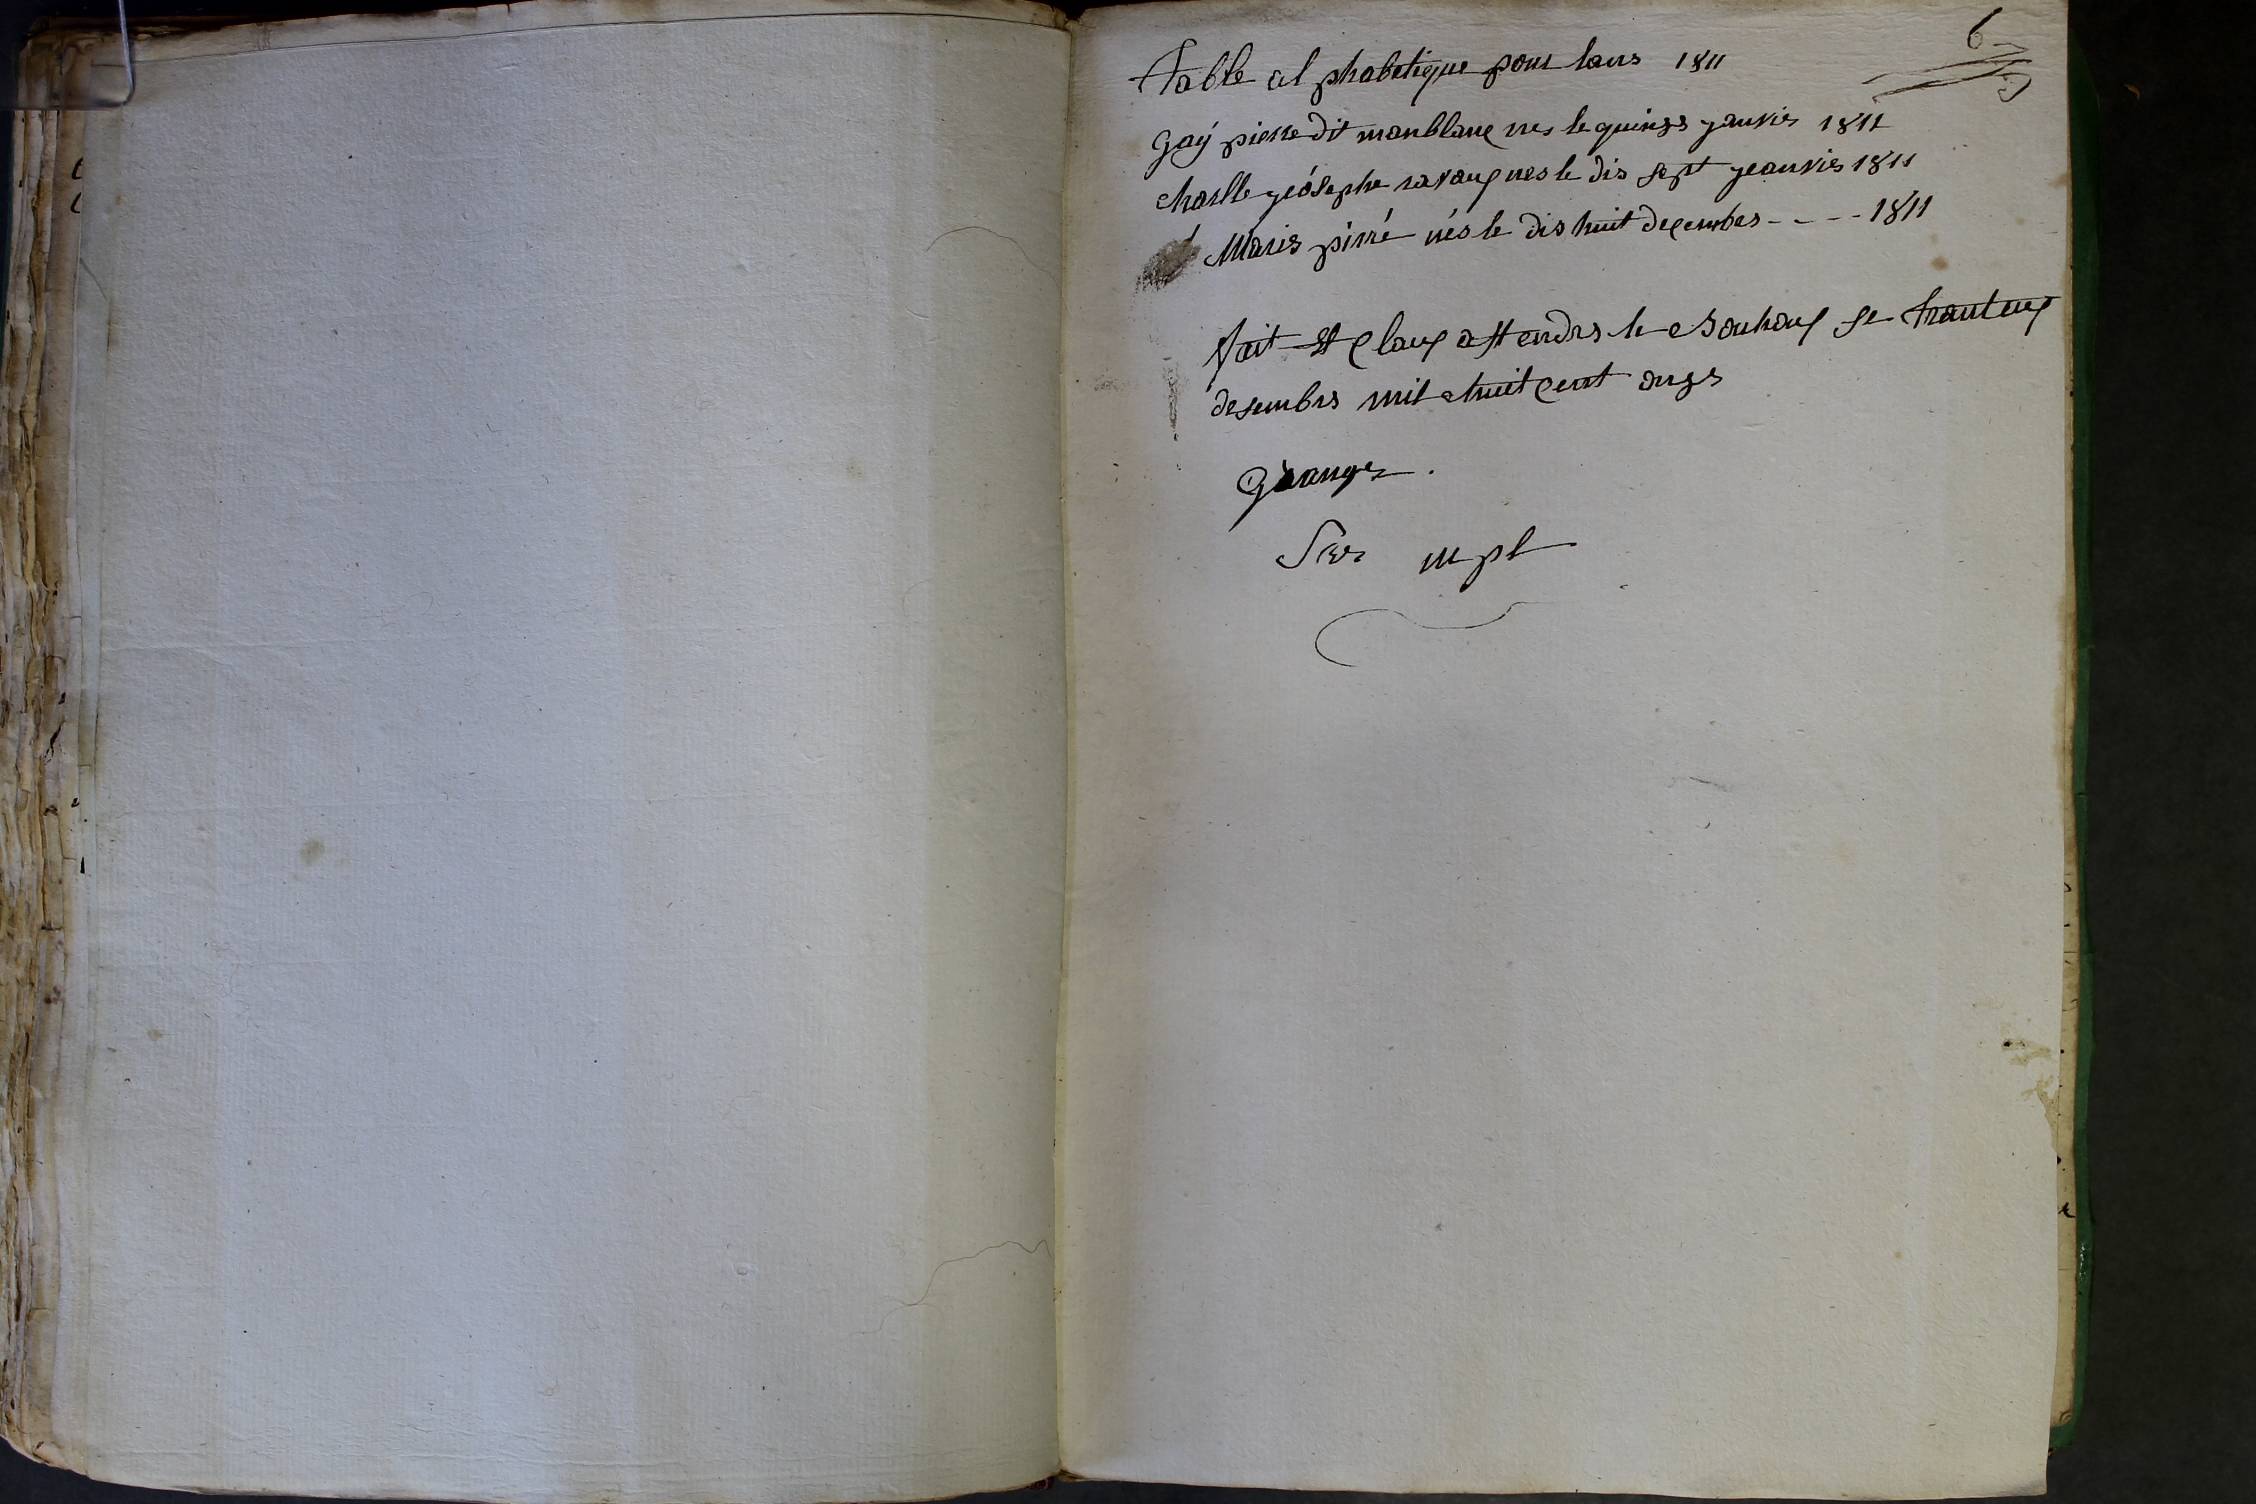 6
table al phabetique pour lans 1811
Gaÿ pierre dit manblanc nes le quinze janvier 1811
charlle jeósephe ravanc nes le dis sept jeanvier 1811
Marie pirré nés le dis huit decembes - - - - 1811
fait et claux a le trant un
desembre mil huit cent onze
Grange
mpl